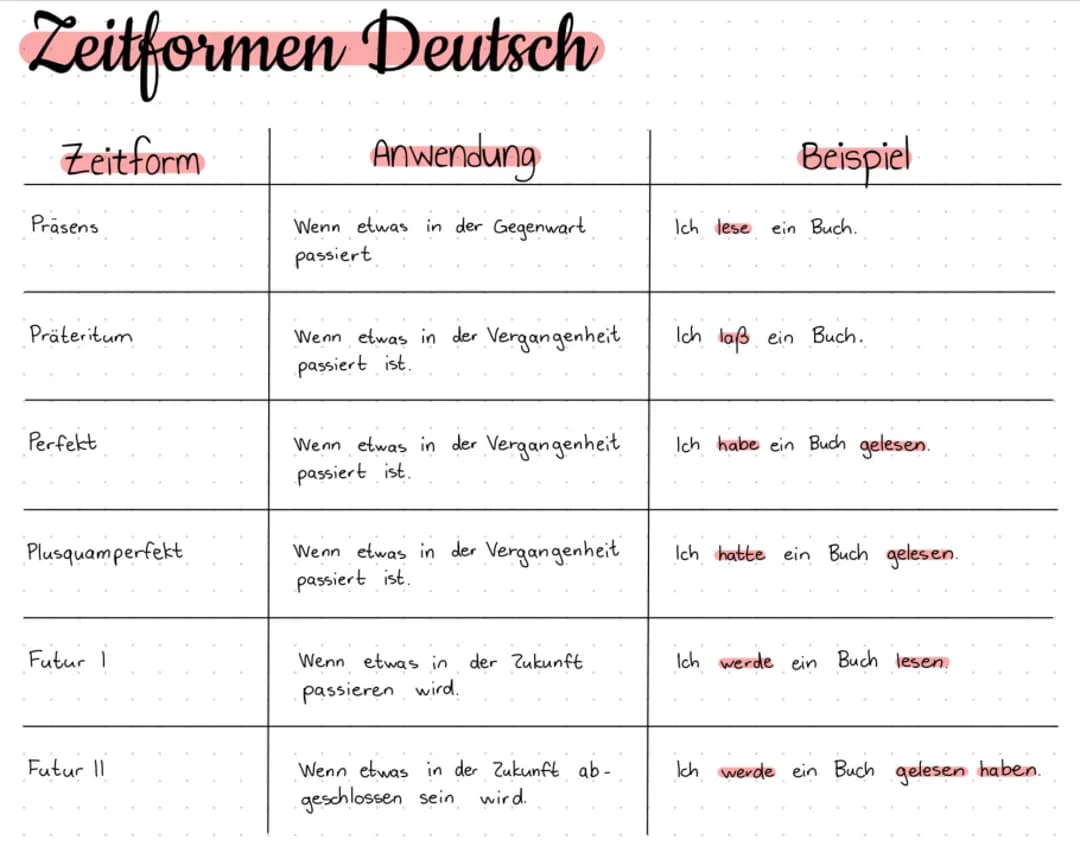 Zeitformen Deutsch
Zeitform Anwendung Beispiel
Präsens Wenn etwas in der Gegenwart Ich lese ein Buch.
passiert
Präteritum Wenn etwas in der Vergangenheit Ich laß ein Buch.
passiert ist.
Perfekt Wenn etwas in der Vergangenheit Ich habe ein Buch gelesen.
passiert ist.
Plusquamperfekt Wenn etwas in der Vergangenheit Ich hatte ein Buch gelesen.
passiert ist.
Futur I Wenn etwas in der Zukunft Ich werde ein Buch lesen.
passieren wird.
Futur II Wenn etwas in der Zukunft ab- Ich werde ein Buch gelesen haben.
geschlossen sein wird.